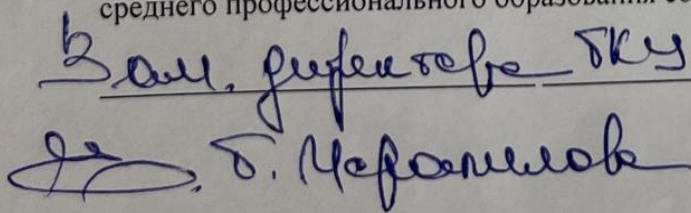 среднего профессионального образования
Зам. директора ГКУ
Б.